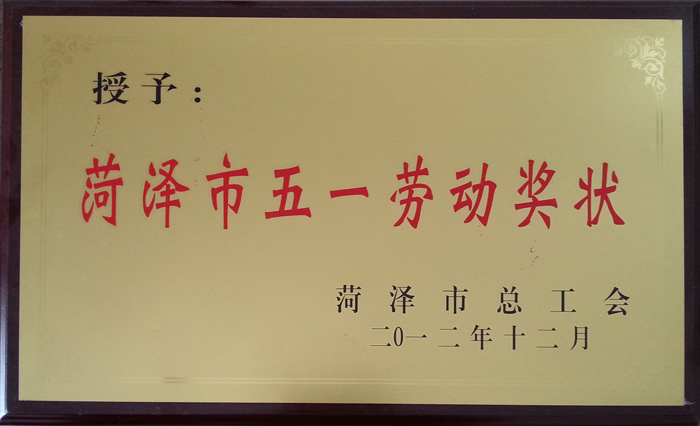 授予：
菏泽市五一劳动奖状
菏泽市总工会
二0一二年十二月